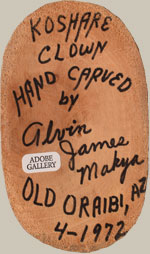 KOSHARE
CLOWN
HAND CARVED
by
Alvin
James
Makya
ADOBE
GALLERY
OLD ORAIBI, AZ
4-1972